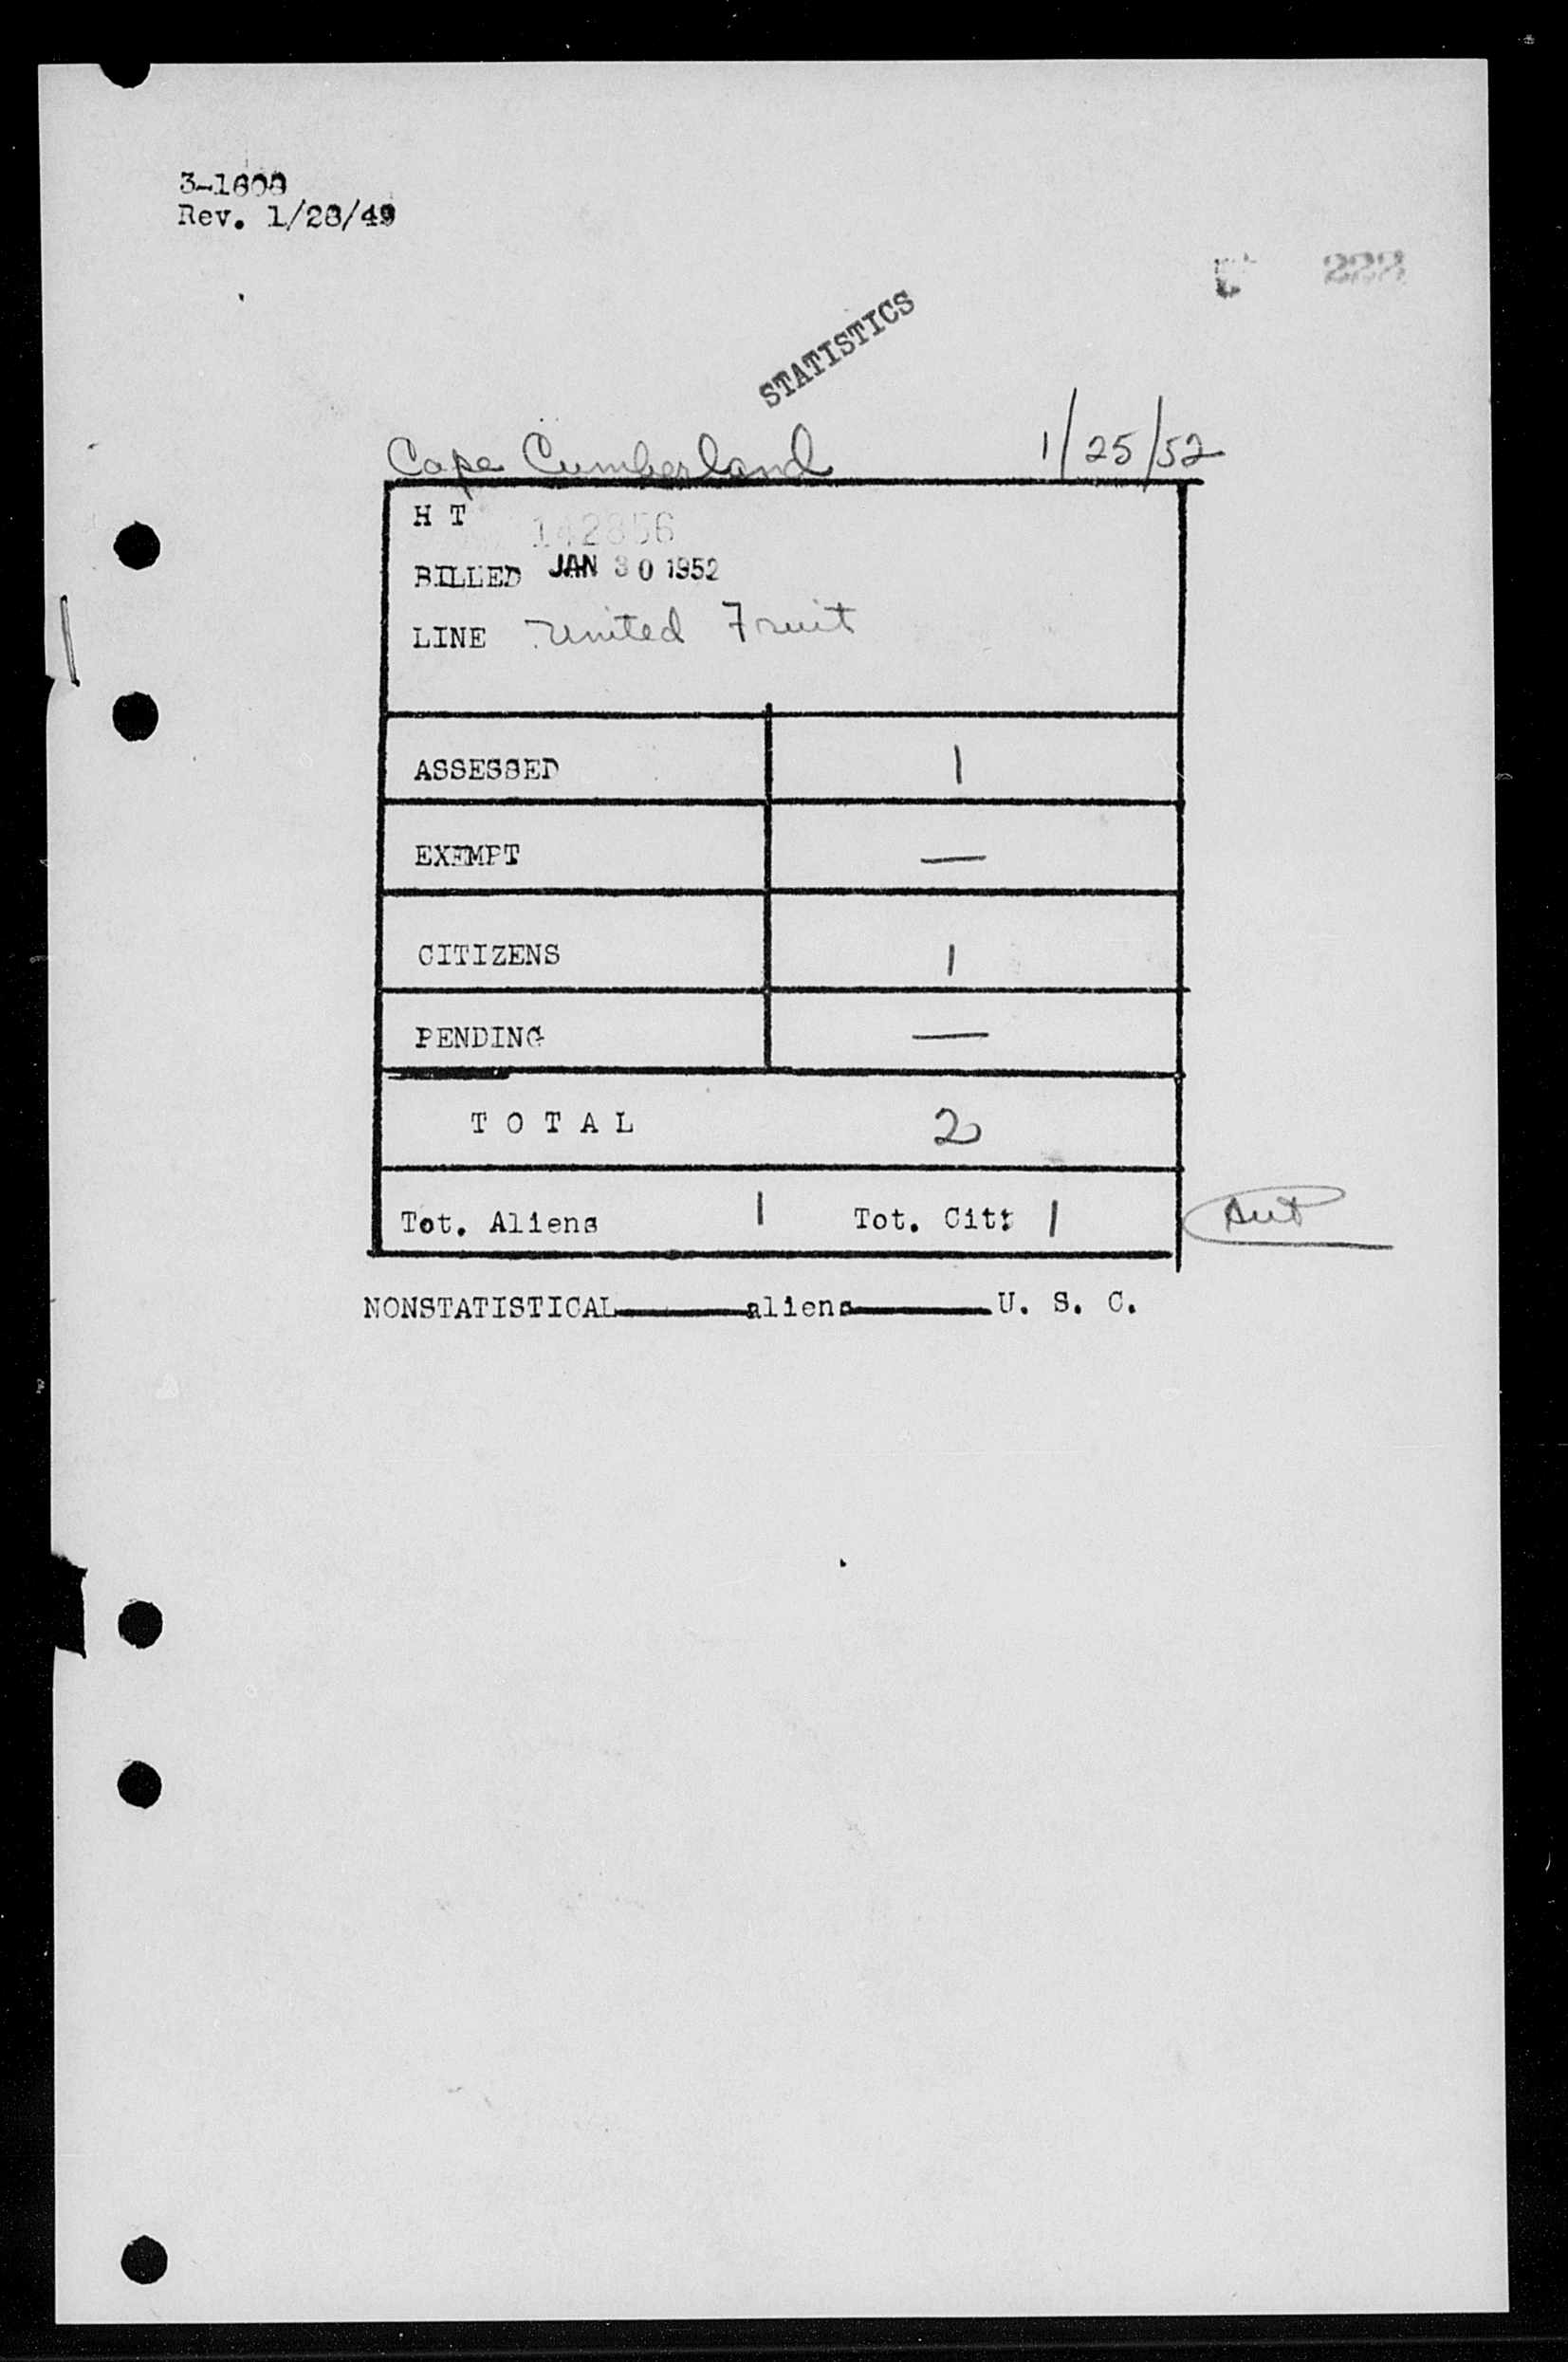 3-1608
Rev. 1/28/49
222
STATISTICS
Cape Cumberland 1/25/52
H T 142356
BILLED JAN 30 1952
LINE United Fruit
ASSESSED 1
EXEMPT —
CITIZENS 1
PENDING —
T O T A L 2
Tot. Aliens 1 Tot. Cit: 1
NONSTATISTICAL aliens U. S. C.